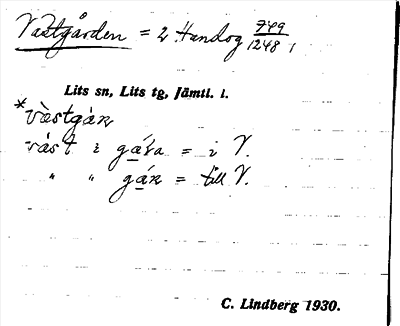 Västgården = 2 Handog 749/1248,
Lits sn, Lits tg, Jämtl. l.
*västgán
väst i gára = i V.
" " gán = till V.
C. Lindberg 1930.